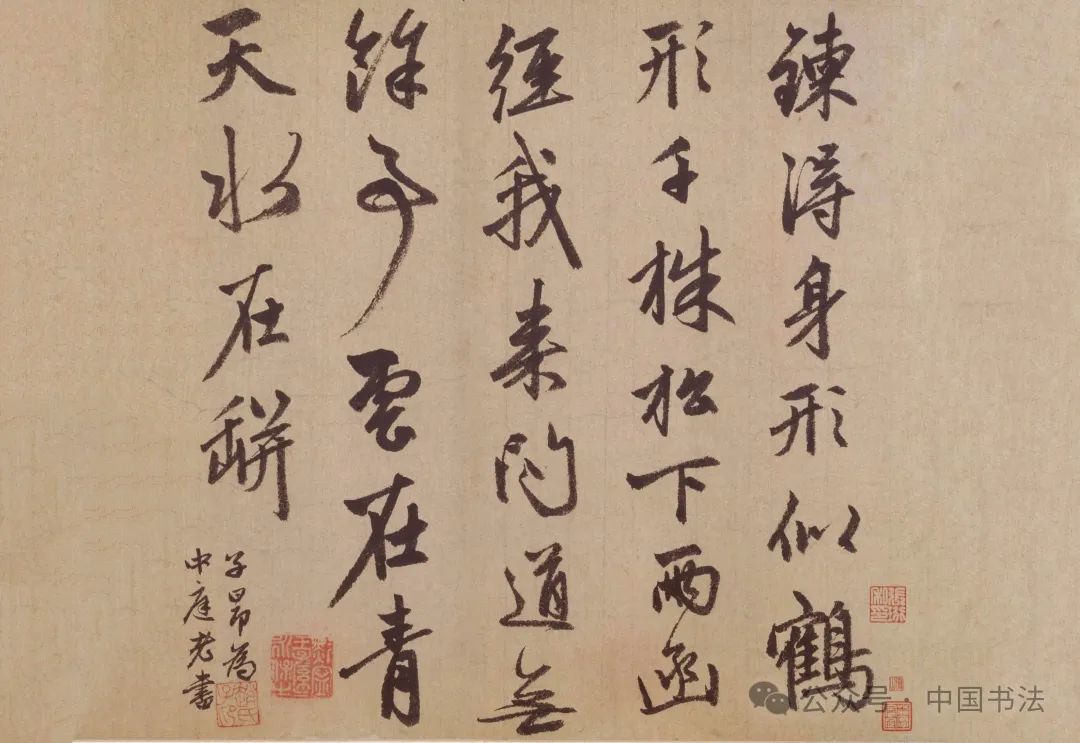 鍊得身形似鶴
形千株松下兩函
經我来問道無
餘事雲在青
天水在缾
子昂爲
中庭老書
公众号·中国书法